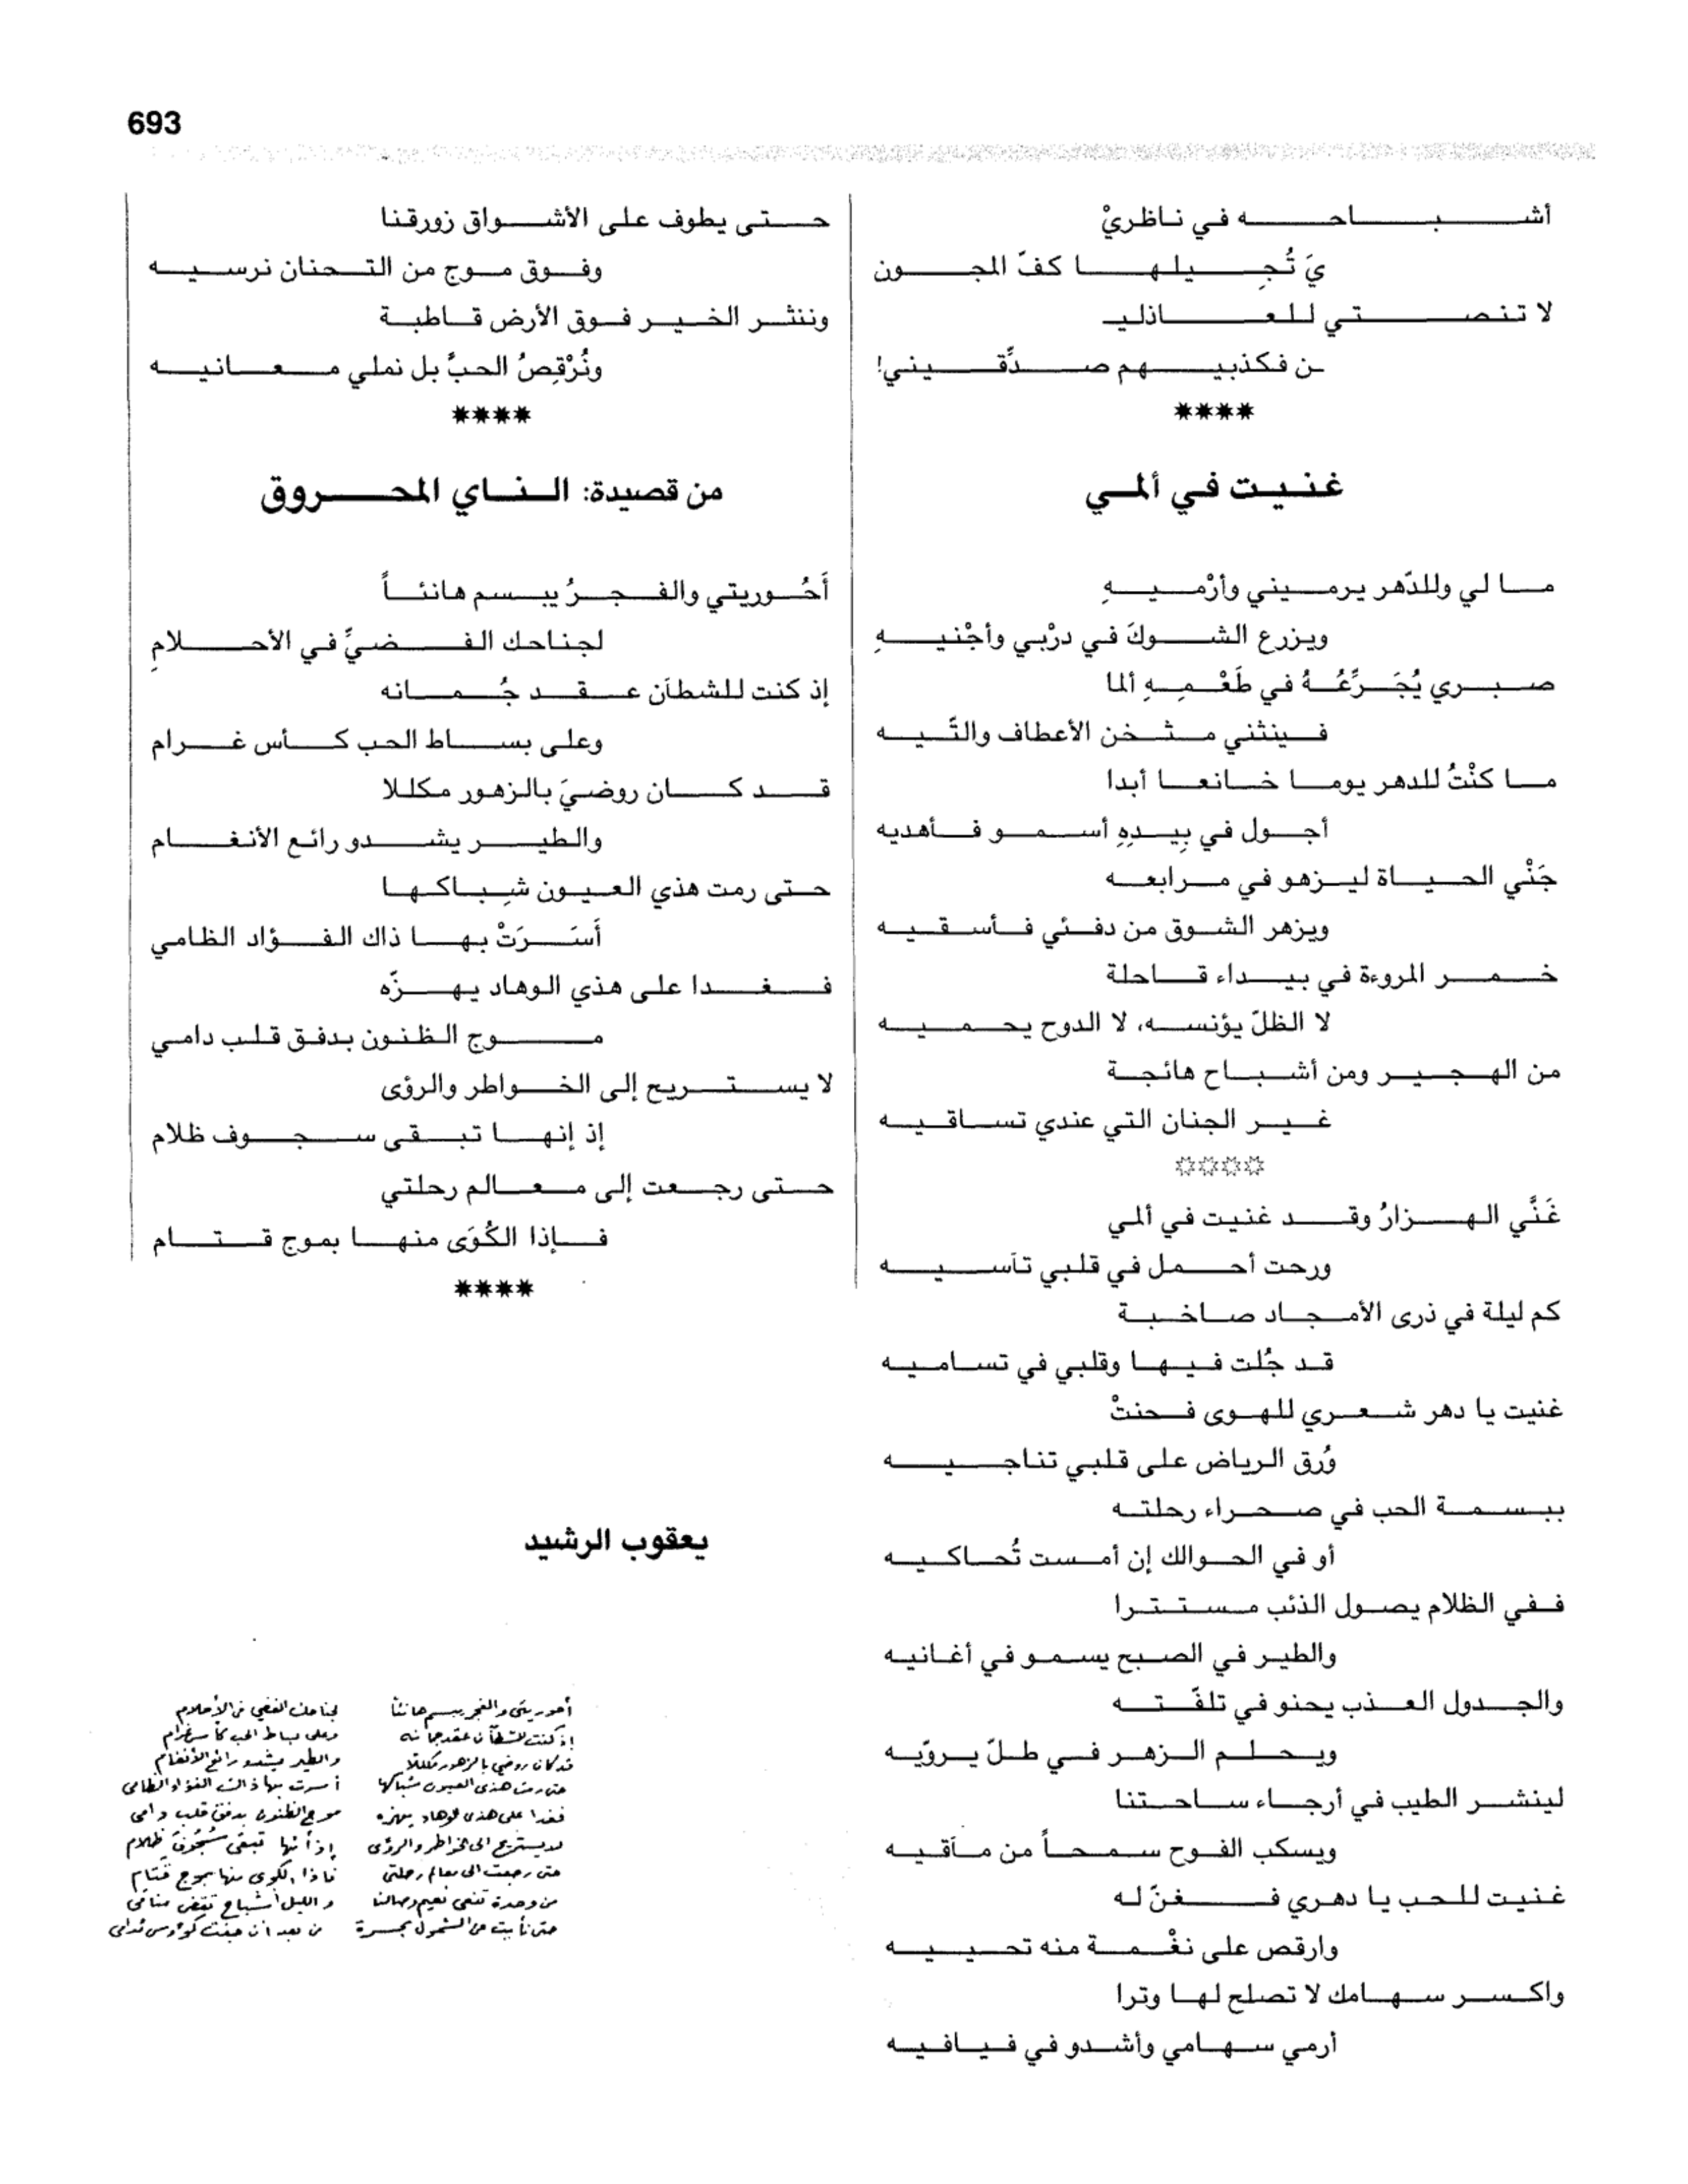 693
أشباحه في ناظريْ
يَ تُجِيلها كفّ المجون
لا تنصتي للعاذليـ
ـن فكذبيهم صدِّقيني!
****
غنيت في ألمي
ما لي وللدّهر يرميني وأرْميهِ
ويزرع الشوكَ في درْبي وأجْنيهِ
صبري يُجَرِّعُهُ في طَعْمِهِ ألما
فينثني مثخن الأعطاف والتِّيه
ما كنْتُ للدهر يوما خانعا أبدا
أجول في بِيدِهِ أسمو فأهديه
جَنْي الحياة ليزهو في مرابعه
ويزهر الشوق من دفئي فأسقيه
خمر المروءة في بيداء قاحلة
لا الظلّ يؤنسه، لا الدوح يحميه
من الهجير ومن أشباح هائجة
غير الجنان التي عندي تساقيه
****
غَنَّي الهزارُ وقد غنيت في ألمي
ورحت أحمل في قلبي تآسيه
كم ليلة في ذرى الأمجاد صاخبة
قد جُلت فيها وقلبي في تساميه
غنيت يا دهر شعري للهوى فحنتْ
وُرق الرياض على قلبي تناجيه
ببسمة الحب في صحراء رحلته
أو في الحوالك إن أمست تُحاكيه
ففي الظلام يصول الذئب مستترا
والطير في الصبح يسمو في أغانيه
والجدول العذب يحنو في تلفّته
ويحلم الزهر في طلّ يرويّه
لينشر الطيب في أرجاء ساحتنا
ويسكب الفوح سمحاً من مآقيه
غنيت للحب يا دهري فغنّ له
وارقص على نغْمة منه تحييه
واكسر سهامك لا تصلح لها وترا
أرمي سهامي وأشدو في فيافيه
حتى يطوف على الأشواق زورقنا
وفوق موج من التحنان نرسيه
وننثر الخير فوق الأرض قاطبة
ونُرْقِصُ الحبَّ بل نملي معانيه
****
من قصيدة: الناي المحروق
أَحُوريتي والفجرُ يبسم هانئاً
لجناحك الفضيِّ في الأحلامِ
إذ كنت للشطآن عقد جُمانه
وعلى بساط الحب كأس غرام
قد كان روضيَ بالزهور مكللا
والطير يشدو رائع الأنغام
حتى رمت هذي العيون شِباكها
أَسَرَتْ بها ذاك الفؤاد الظامي
فغدا على هذي الوهاد يهزّه
موج الظنون بدفق قلب دامي
لا يستريح إلى الخواطر والرؤى
إذ إنها تبقى سجوف ظلام
حتى رجعت إلى معالم رحلتي
فإذا الكُوَى منها بموج قتام
****
يعقوب الرشيد
أحوريتي والفجر يبسم هانئا لجناحك الفضي في الأحلام
إذ كنت للشطآن عقد جمانه وعلى بساط الحب كأس غرام
قد كان روضي بالزهور مكللا والطير يشدو رائع الأنغام
حتى رمت هذي العيون شباكها أسرت بها ذاك الفؤاد الظامي
فغدا على هذي الوهاد يهزه موج الظنون بدفق قلب دامي
لا يستريح الى الخواطر والرؤى إذ أنها تبقى سُجُوفَ ظلام
حتى رجعت الى معالم رحلتي فاذا الكوى منها بموج قتام
من وحدة تنعى نعيم وصالنا والليل أشباح تقض منامي
حتى نأيت عن الشمول بحسرة من بعد أن جفت كؤوس ندامى